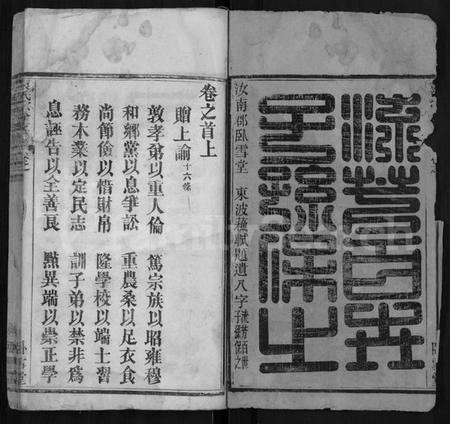 流芳百世
子孫保之
汝南郡臥雪堂 東波蘓軾題遺八字 流芳百世 子孫保之
卷之首上
贈上諭 十六條
敦孝弟以重人倫 篤宗族以昭雍穆
和鄉黨以息爭訟 重農桑以足衣食
尚節儉以惜財帛 隆學校以端士習
務本業以定民志 訓子弟以禁非爲
息誣告以全善良 黜異端以崇正學